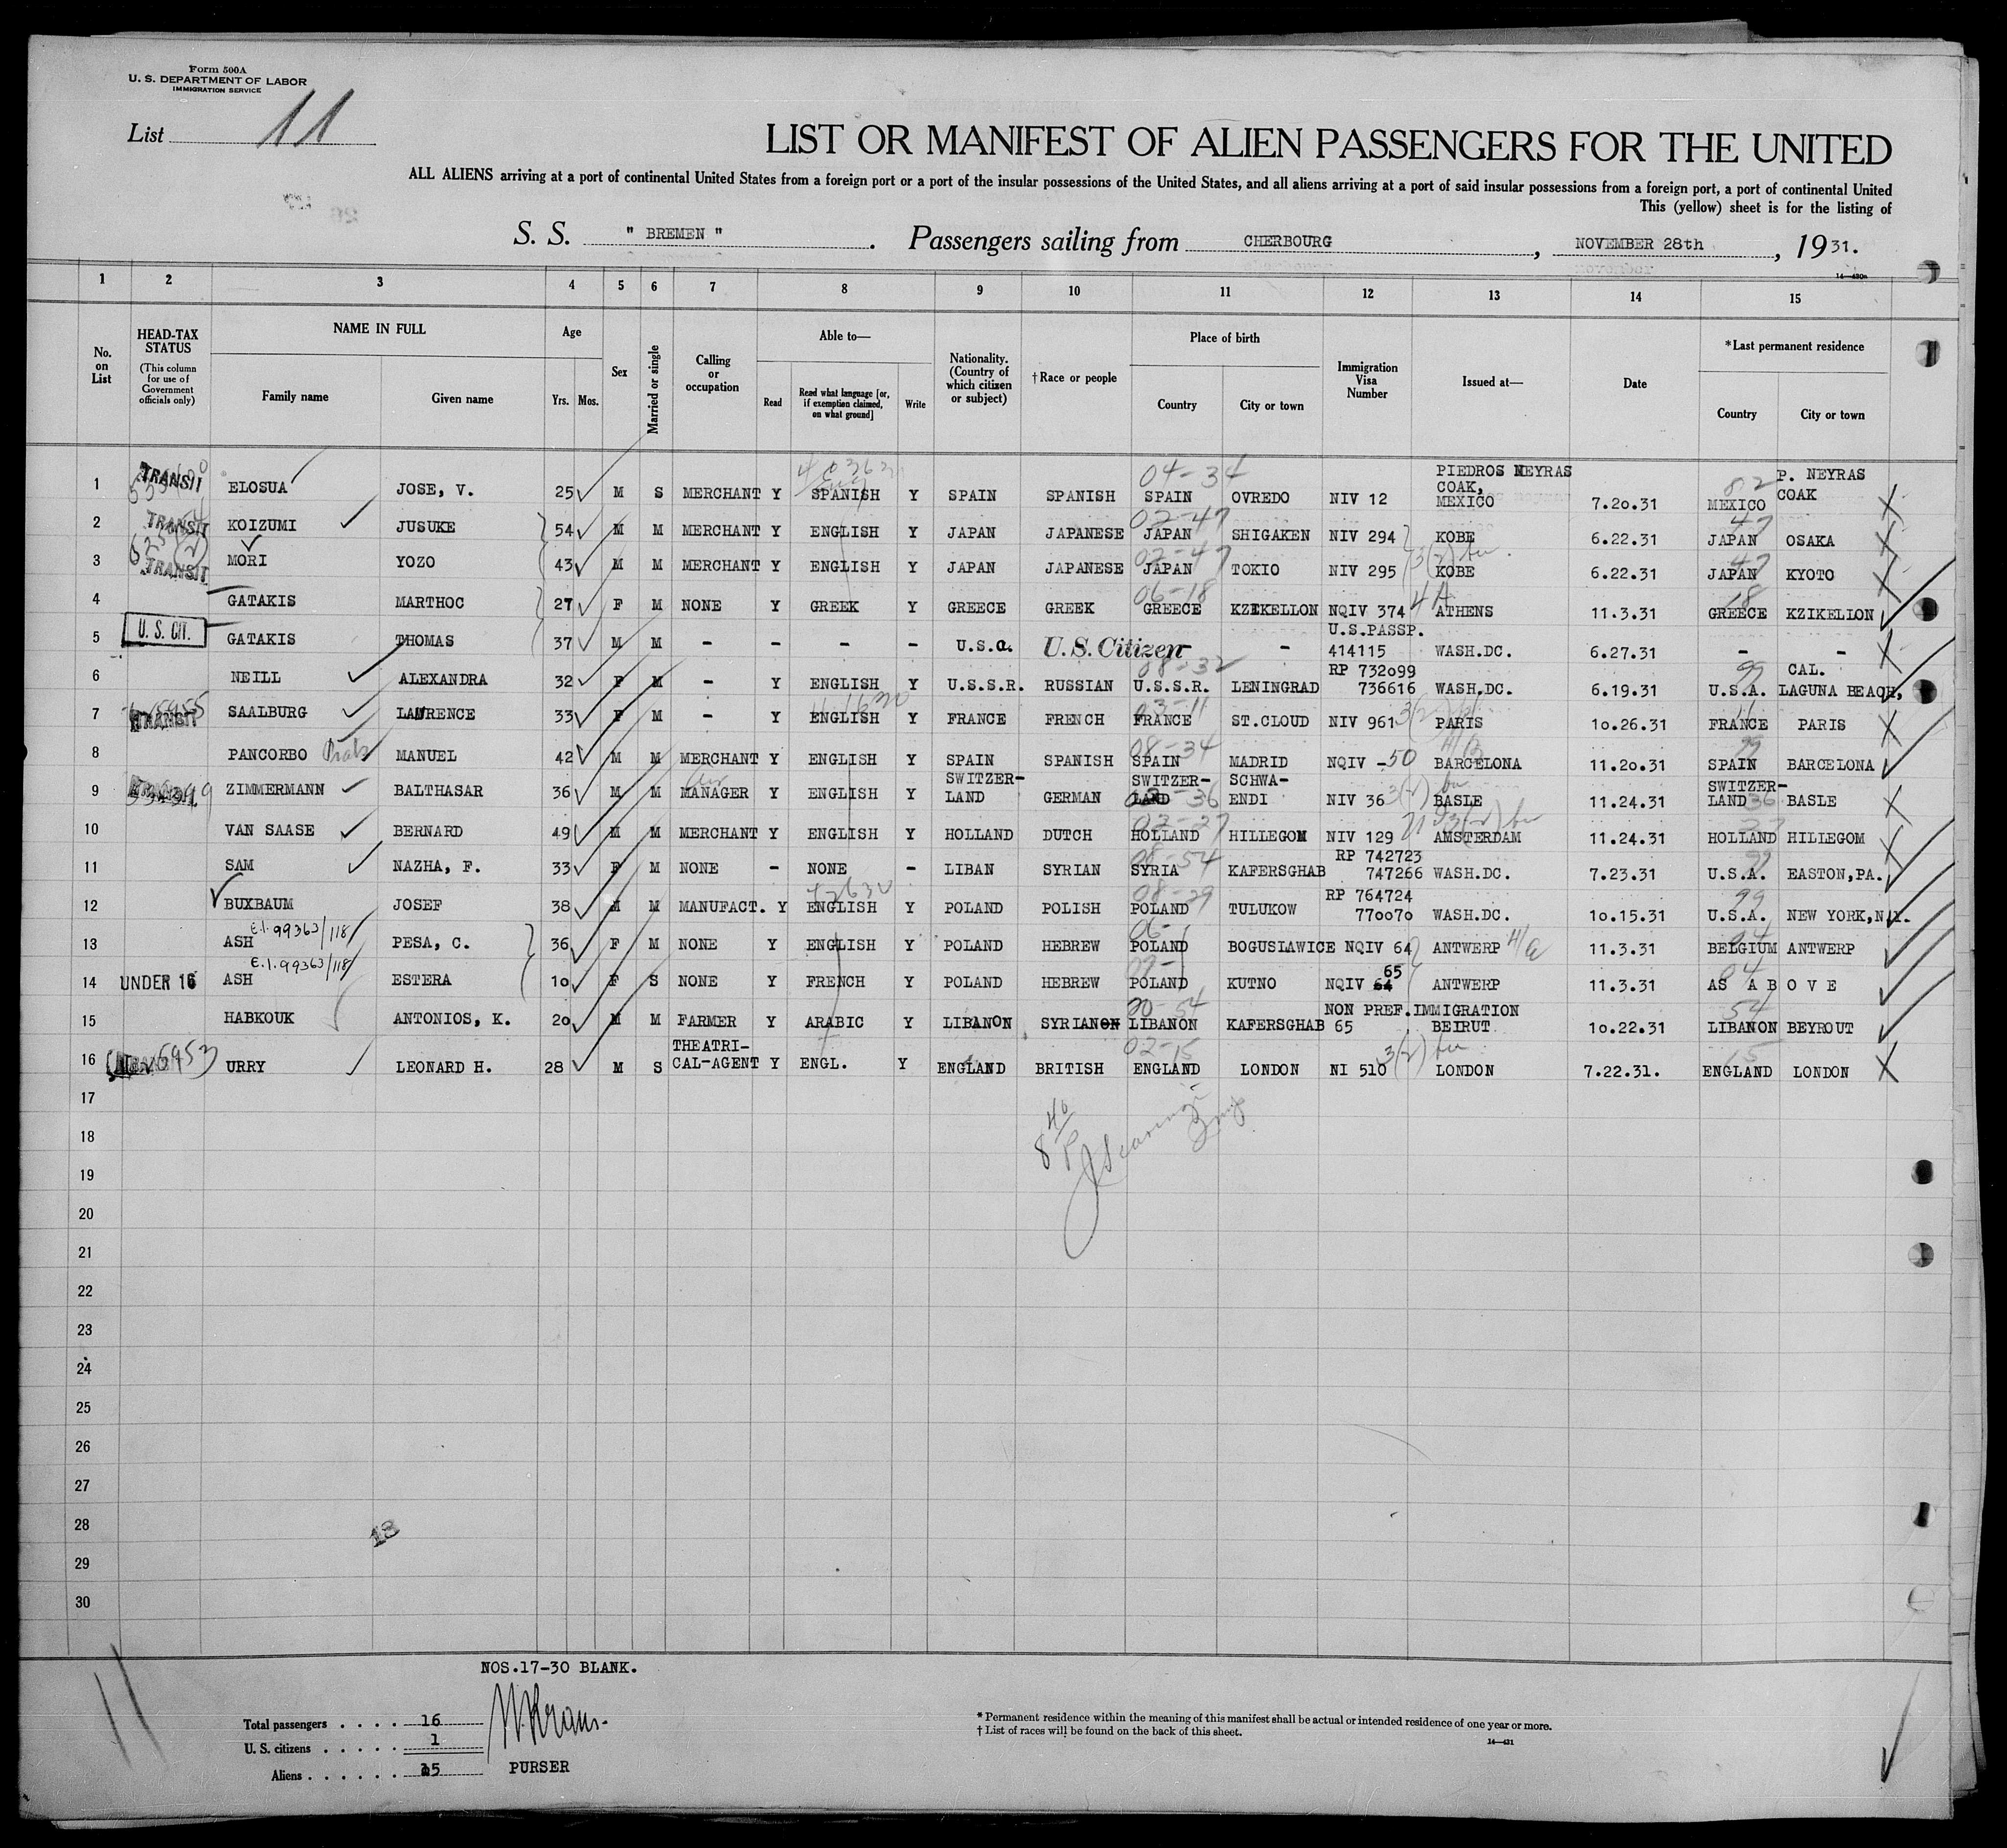 Form 500A
U. S. DEPARTMENT OF LABOR
IMMIGRATION SERVICE
List 11
LIST OR MANIFEST OF ALIEN PASSENGERS FOR THE UNITED
ALL ALIENS arriving at a port of continental United States from a foreign port or a port of the insular possessions of the United States, and all aliens arriving at a port of said insular possessions from a foreign port, a port of continental United
This (yellow) sheet is for the listing of
S. S. " BREMEN ". Passengers sailing from CHERBOURG, NOVEMBER 28th, 1931.
14—430a
1 2 3 4 5 6 7 8 9 10 11 12 13 14 15
No. on List
HEAD-TAX STATUS
(This column for use of Government officials only)
NAME IN FULL
Family name Given name
Age
Yrs. Mos.
Sex
Married or single
Calling or occupation
Able to—
Read
Read what language [or, if exemption claimed, on what ground]
Write
Nationality. (Country of which citizen or subject)
†Race or people
Place of birth
Country City or town
Immigration Visa Number
Issued at—
Date
*Last permanent residence
Country City or town
1 TRANSIT ELOSUA JOSE, V. 25 M S MERCHANT Y SPANISH Y SPAIN SPANISH 04-34 SPAIN OVREDO NIV 12 PIEDROS NEYRAS COAK, MEXICO 7.20.31 82 MEXICO P. NEYRAS COAK
2 TRANSIT KOIZUMI JUSUKE 54 M M MERCHANT Y ENGLISH Y JAPAN JAPANESE 02-47 JAPAN SHIGAKEN NIV 294 KOBE 6.22.31 47 JAPAN OSAKA
3 TRANSIT MORI YOZO 43 M M MERCHANT Y ENGLISH Y JAPAN JAPANESE 02-47 JAPAN TOKIO NIV 295 KOBE 6.22.31 47 JAPAN KYOTO
4 GATAKIS MARTHOC 27 F M NONE Y GREEK Y GREECE GREEK 06-18 GREECE KZIKELLON NQIV 374 4A ATHENS 11.3.31 18 GREECE KZIKELLON
5 U. S. CIT. GATAKIS THOMAS 37 M M - - - - U.S.a. U.S. Citizen - U.S.PASSP. 414115 WASH.DC. 6.27.31 - -
6 NEILL ALEXANDRA 32 F M - Y ENGLISH Y U.S.S.R. RUSSIAN 08-32 U.S.S.R. LENINGRAD RP 732099 736616 WASH.DC. 6.19.31 99 U.S.A. CAL. LAGUNA BEACH,
7 TRANSIT SAALBURG LAWRENCE 33 F M - Y ENGLISH Y FRANCE FRENCH 03-11 FRANCE ST.CLOUD NIV 961 PARIS 10.26.31 11 FRANCE PARIS
8 PANCORBO MANUEL 42 M M MERCHANT Y ENGLISH Y SPAIN SPANISH 08-34 SPAIN MADRID NQIV -50 BARCELONA 11.20.31 99 SPAIN BARCELONA
9 ZIMMERMANN BALTHASAR 36 M M MANAGER Y ENGLISH Y SWITZER-LAND GERMAN SWITZER-LAND 36 SCHWA-ENDI NIV 36 BASLE 11.24.31 SWITZER-LAND 36 BASLE
10 VAN SAASE BERNARD 49 M M MERCHANT Y ENGLISH Y HOLLAND DUTCH 02-27 HOLLAND HILLEGOM NIV 129 AMSTERDAM 11.24.31 27 HOLLAND HILLEGOM
11 SAM NAZHA, F. 33 F M NONE - NONE - LIBAN SYRIAN 08-54 SYRIA KAFERSGHAB RP 742723 747266 WASH.DC. 7.23.31 99 U.S.A. EASTON,PA.
12 BUXBAUM JOSEF 38 M M MANUFACT. Y ENGLISH Y POLAND POLISH 08-29 POLAND TULUKOW RP 764724 770070 WASH.DC. 10.15.31 99 U.S.A. NEW YORK,N.Y.
13 ASH E.I.99363/118 PESA, C. 36 F M NONE Y ENGLISH Y POLAND HEBREW 06- POLAND BOGUSLAWICE NQIV 64 ANTWERP 11.3.31 04 BELGIUM ANTWERP
14 UNDER 16 ASH E.I.99363/118 ESTERA 10 F S NONE Y FRENCH Y POLAND HEBREW 09- POLAND KUTNO NQIV 64 65 ANTWERP 11.3.31 04 AS A B O V E
15 HABKOUK ANTONIOS, K. 20 M M FARMER Y ARABIC Y LIBANON SYRIANON 20-54 LIBANON KAFERSGHAB NON PREF.IMMIGRATION 65 BEIRUT 10.22.31 54 LIBANON BEYROUT
16 URRY LEONARD H. 28 M S THEATRI-CAL-AGENT Y ENGL. Y ENGLAND BRITISH 02-15 ENGLAND LONDON NI 510 LONDON 7.22.31. 15 ENGLAND LONDON
17
18
19
20
21
22
23
24
25
26
27
28
29
30
13
NOS.17-30 BLANK.
11
Total passengers . . . . 16
U. S. citizens . . . . . 1
Aliens . . . . . . 15
PURSER
* Permanent residence within the meaning of this manifest shall be actual or intended residence of one year or more.
† List of races will be found on the back of this sheet.
14—431